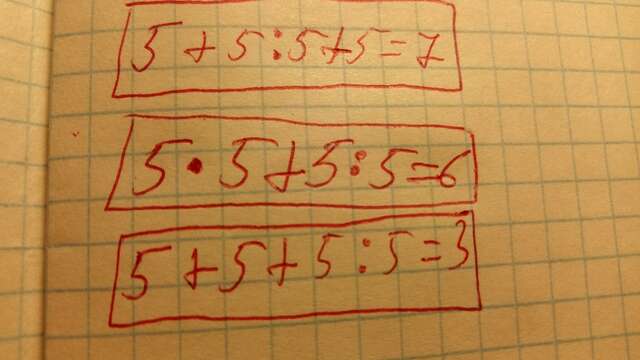 5+5:5+5=7
5·5+5:5=6
5+5+5:5=3